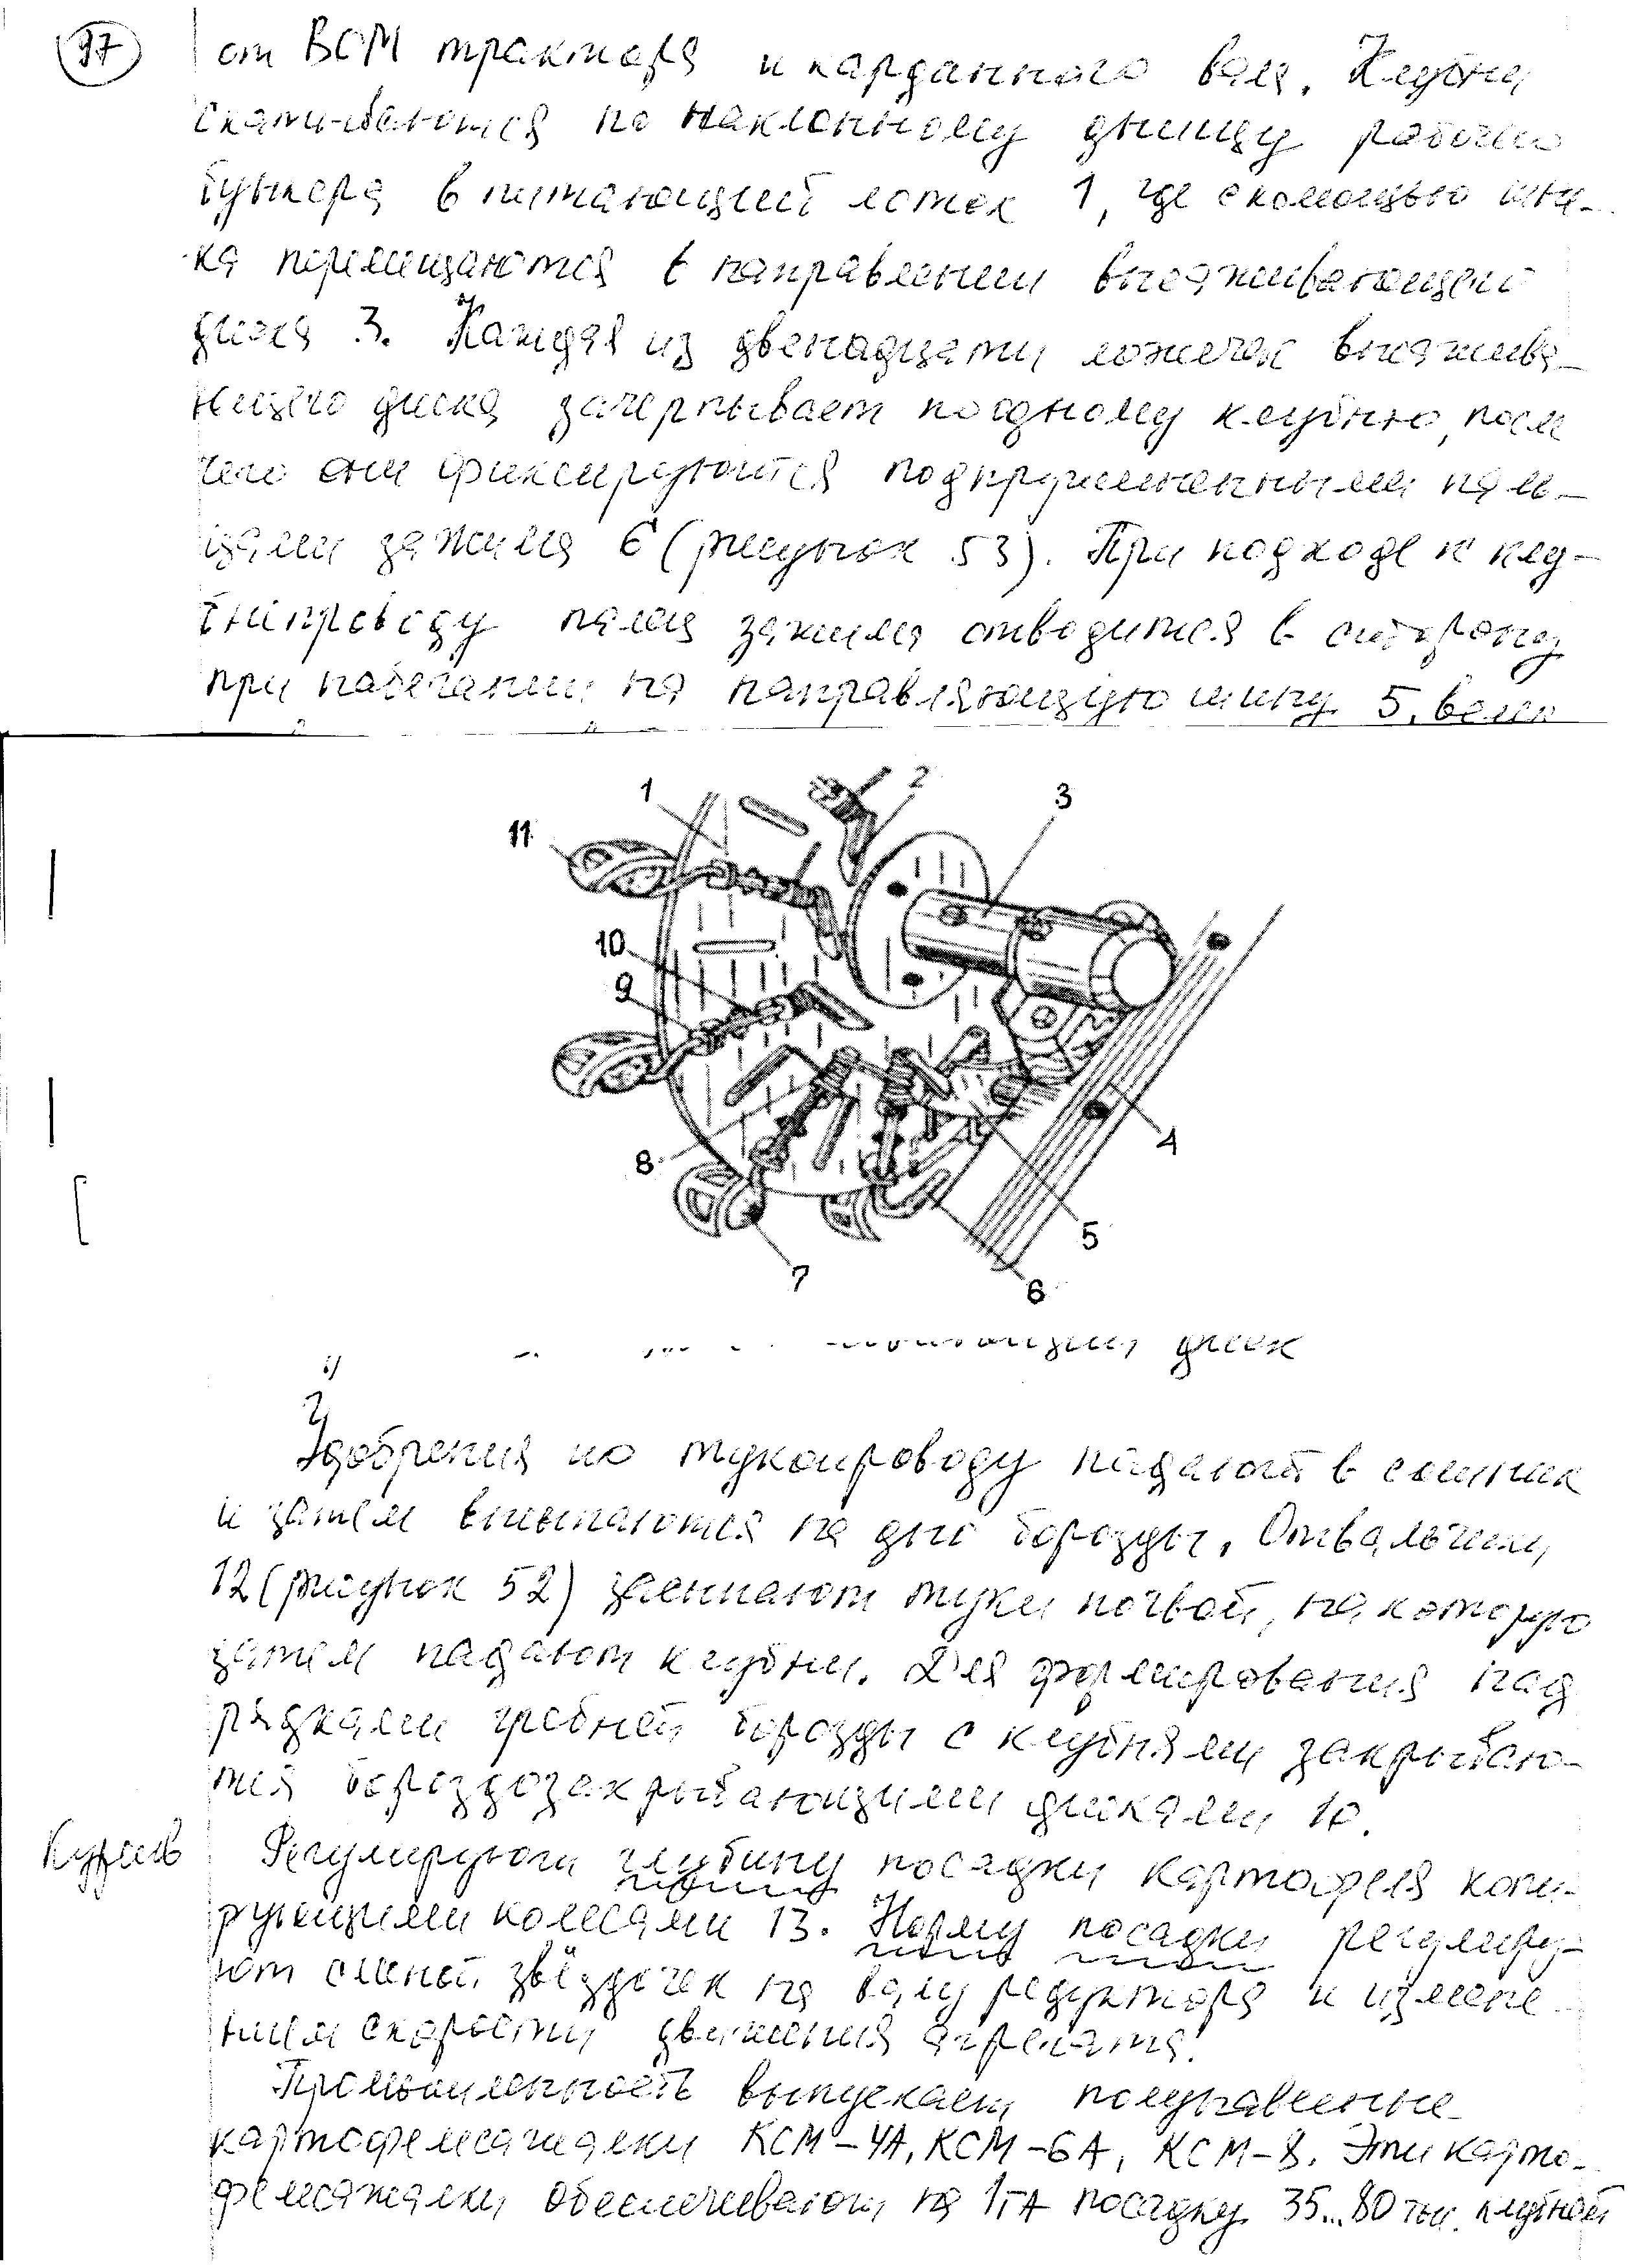 97
от ВОМ трактора и карданного вала. Клубни
скатываются по наклонному днищу рабочего
бункера в питающий лоток 1, где с помощью шне-
ка перемещаются в направлении вычерпывающего
диска 3. Каждая из двенадцати ложечек
диска зачерпывает по одному клубню, после
чего они фиксируются подпружиненными паль-
цами зажима 6 (рисунок 53). При подходе к клу-
бнепроводу палец зажима отводится в сторону
при набегании на направляющую шину 5,
1
2
3
11
10
9
4
8
5
7
6
диск
Удобрения по тукопроводу падают в сошник
и затем высыпаются на дно борозды. Отвальчики
12 (рисунок 52) засыпают туки почвой, на которую
затем падают клубни. Для формирования над
рядками гребней борозды с клубнями закрываю-
тся бороздозакрывающими дисками 10.
Курсив
Регулируют глубину посадки картофеля копи-
рующими колесами 13. Норму посадки регулиру-
ют сменой звёздочек на валу редуктора и измене-
нием скорости движения агрегата.
Промышленность выпускает полунавесные
картофелесажалки КСМ-4А, КСМ-6А, КСМ-8. Эти карто-
фелесажалки обеспечивают на 1га посадку 35...80 тыс. клубней